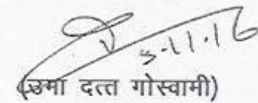 5-11-16
(उमा दत्त गोस्वामी)